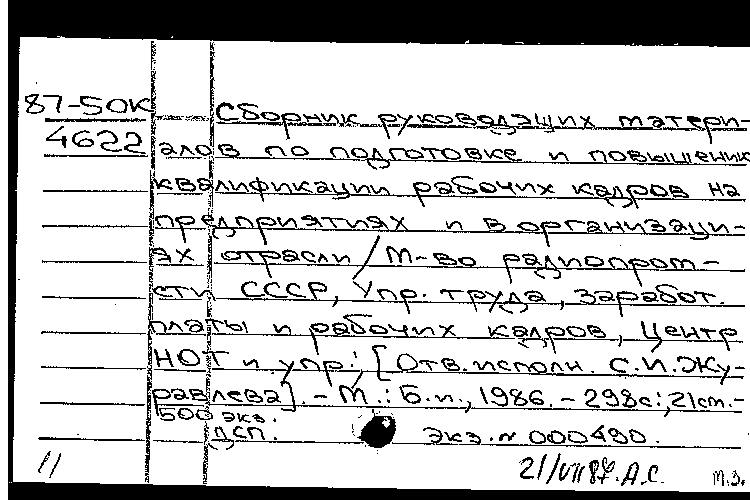 87-50К
4622
Сборник руководящих матери-
алов по подготовке и повышению
квалификации рабочих кадров на
предприятиях и в организаци-
ях отрасли / М-во радиопром-
сти СССР, Упр. труда, заработ.
платы и рабочих кадров, Центр
НОТ и упр.; [Отв. исполн. С.И. Жу-
равлева]. - М.: Б.и., 1986. - 298с.; 21см. -
500 экз.
ДСП. Экз. № 000490.
11 21/VII 87. А.С. м.з.